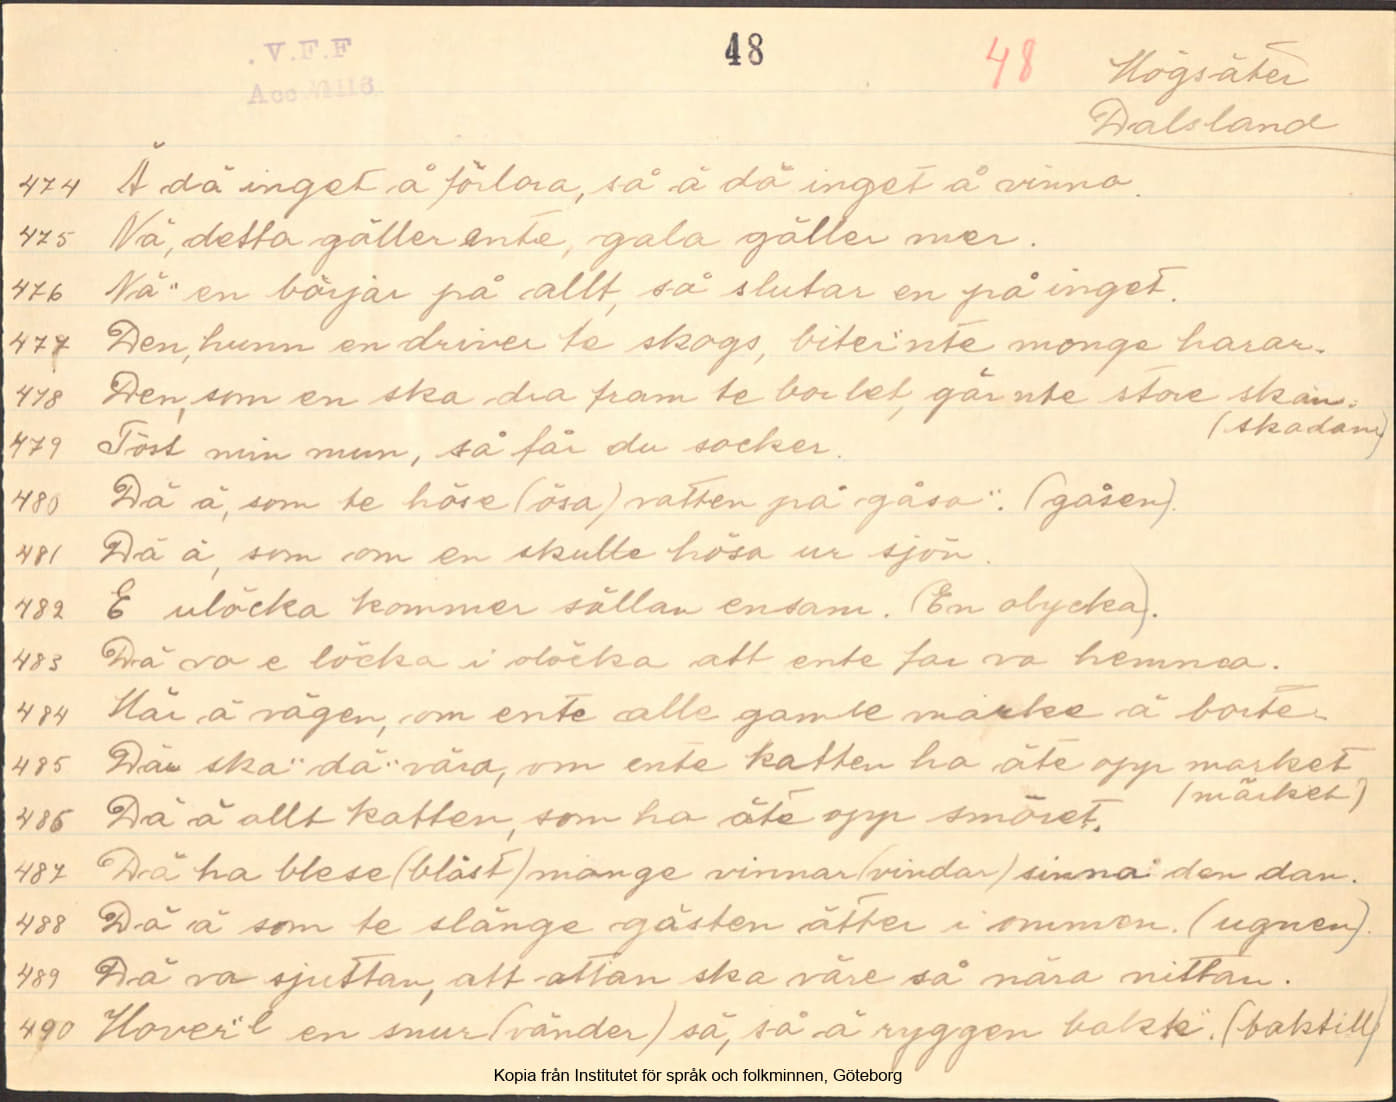 V.F.F 48 48 Högsäter
Acc Dalsland
474 Ä dä inget å förlora, så ä dä inget å vinna.
475 Nä, detta gäller ente, gala gäller mer.
476 Nä" en börjar på allt, så slutar en på inget.
477 Den, hunn en driver te skogs, biter"nte monge harar.
478 Den, som en ska dra fram te borlet, gär nte store skan.
(skadan)
479 Töst min mun, så får du socker.
480 Dä ä, som te höse (ösa) vatten på gåsa". (gåsen).
481 Dä ä, som om en skulle hösa ur sjön.
482 E ulöcka kommer sällan ensam. (En olycka).
483 Dä va e löcka i olöcka att ente far va hemma.
484 Här ä vägen, om ente alle gamle märke ä borte.
485 Där ska" dä" vära, om ente katten ha äte opp market
(märket)
486 Dä ä allt katten, som ha äte opp smöret.
487 Dä ha blese (blåst) mange vinnar (vindar) sinna den dan.
488 Dä ä som te slänge gästen ätter i ommen. (ugnen).
489 Dä va sjuttan, att attan ska väre så nära nittan.
490 Hover"l en snur (vänder) sä, så ä ryggen bakte". (baktill)
Kopia från Institutet för språk och folkminnen, Göteborg